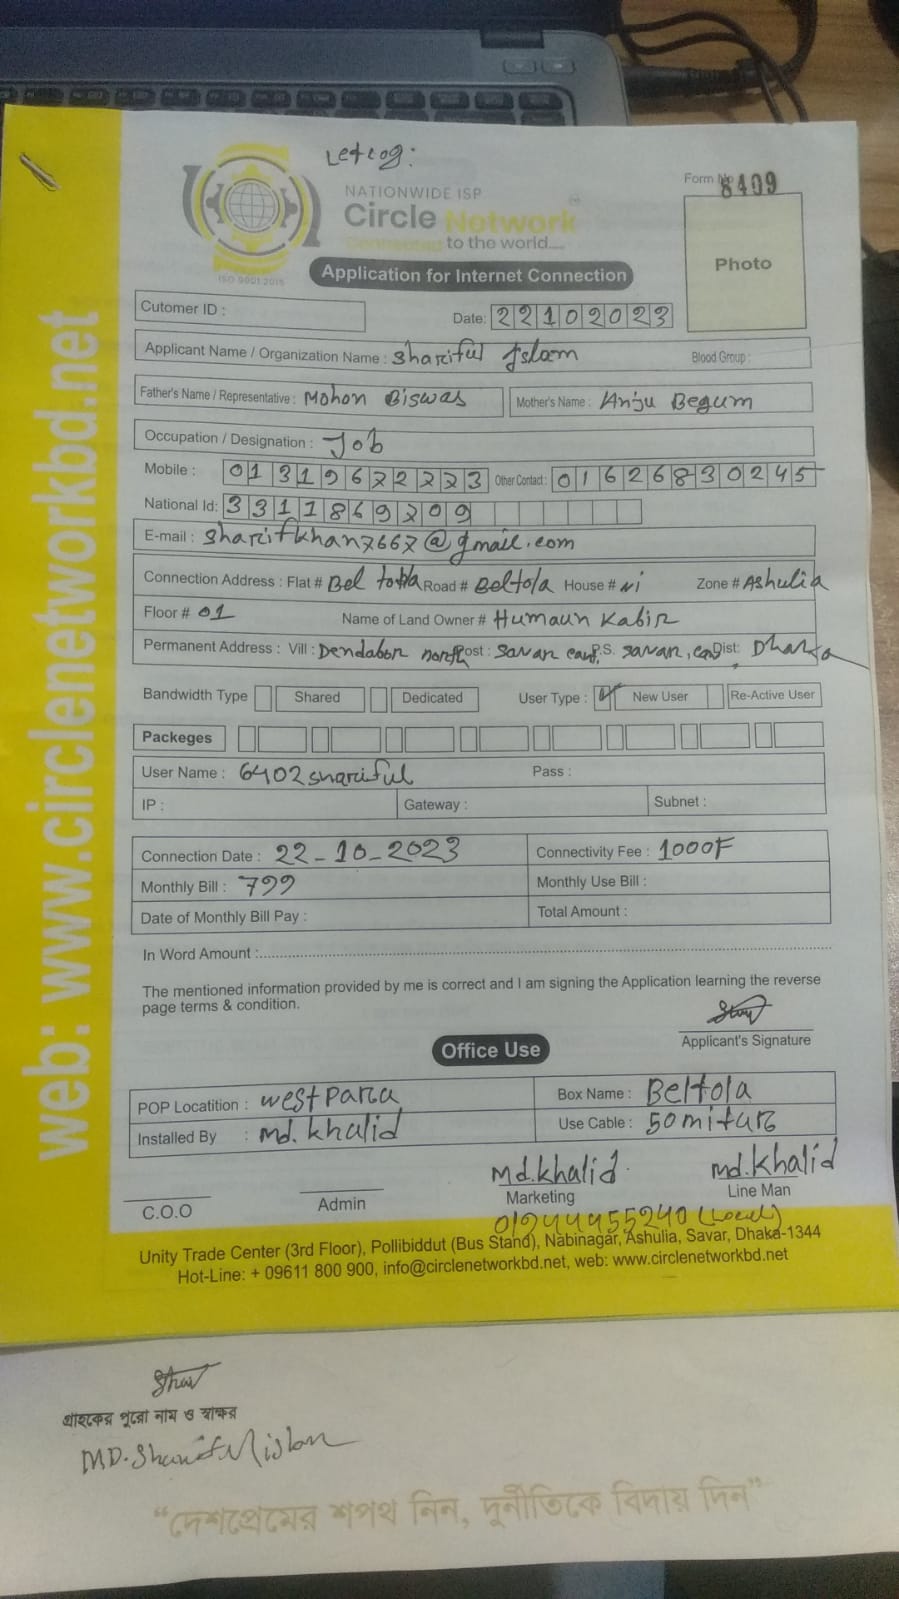 Letcog:
NATIONWIDE ISP
Circle Network
Connected to the world....
ISO 9001:2015
Form No 8409
Photo
Application for Internet Connection
Cutomer ID :
Date: 22102023
Applicant Name / Organization Name : Shariful Islam Blood Group :
Father's Name / Representative : Mohon Biswas Mother's Name : Anju Begum
Occupation / Designation : Job
Mobile : 01319672773 Other Contact : 01626830245
National Id: 3311869709
E-mail : sharifkhan7667@gmail.com
Connection Address : Flat # Bel tola Road # Beltola House # Ni Zone # Ashulia
Floor # 01 Name of Land Owner # Humaun Kabir
Permanent Address : Vill : Dendabor north Post : Savar cant, P.S. Savar, cant Dist: Dhaka
Bandwidth Type Shared Dedicated User Type : New User Re-Active User
Packeges
User Name : 6402shariful Pass :
IP : Gateway : Subnet :
Connection Date : 22-10-2023 Connectivity Fee : 1000F
Monthly Bill : 799 Monthly Use Bill :
Date of Monthly Bill Pay : Total Amount :
In Word Amount :
The mentioned information provided by me is correct and I am signing the Application learning the reverse
page terms & condition.
Applicant's Signature
Office Use
POP Locatition : West Para Box Name : Beltola
Installed By : Md. Khalid Use Cable : 50 mitar
Md.Khalid Md.Khalid
C.O.O Admin Marketing Line Man
01944455240 (Local)
Unity Trade Center (3rd Floor), Pollibiddut (Bus Stand), Nabinagar, Ashulia, Savar, Dhaka-1344
Hot-Line: + 09611 800 900, info@circlenetworkbd.net, web: www.circlenetworkbd.net
web: www.circlenetworkbd.net
গ্রাহকের পুরো নাম ও স্বাক্ষর
MD. Shariful islam
“দেশপ্রেমের শপথ নিন, দুর্নীতিকে বিদায় দিন”